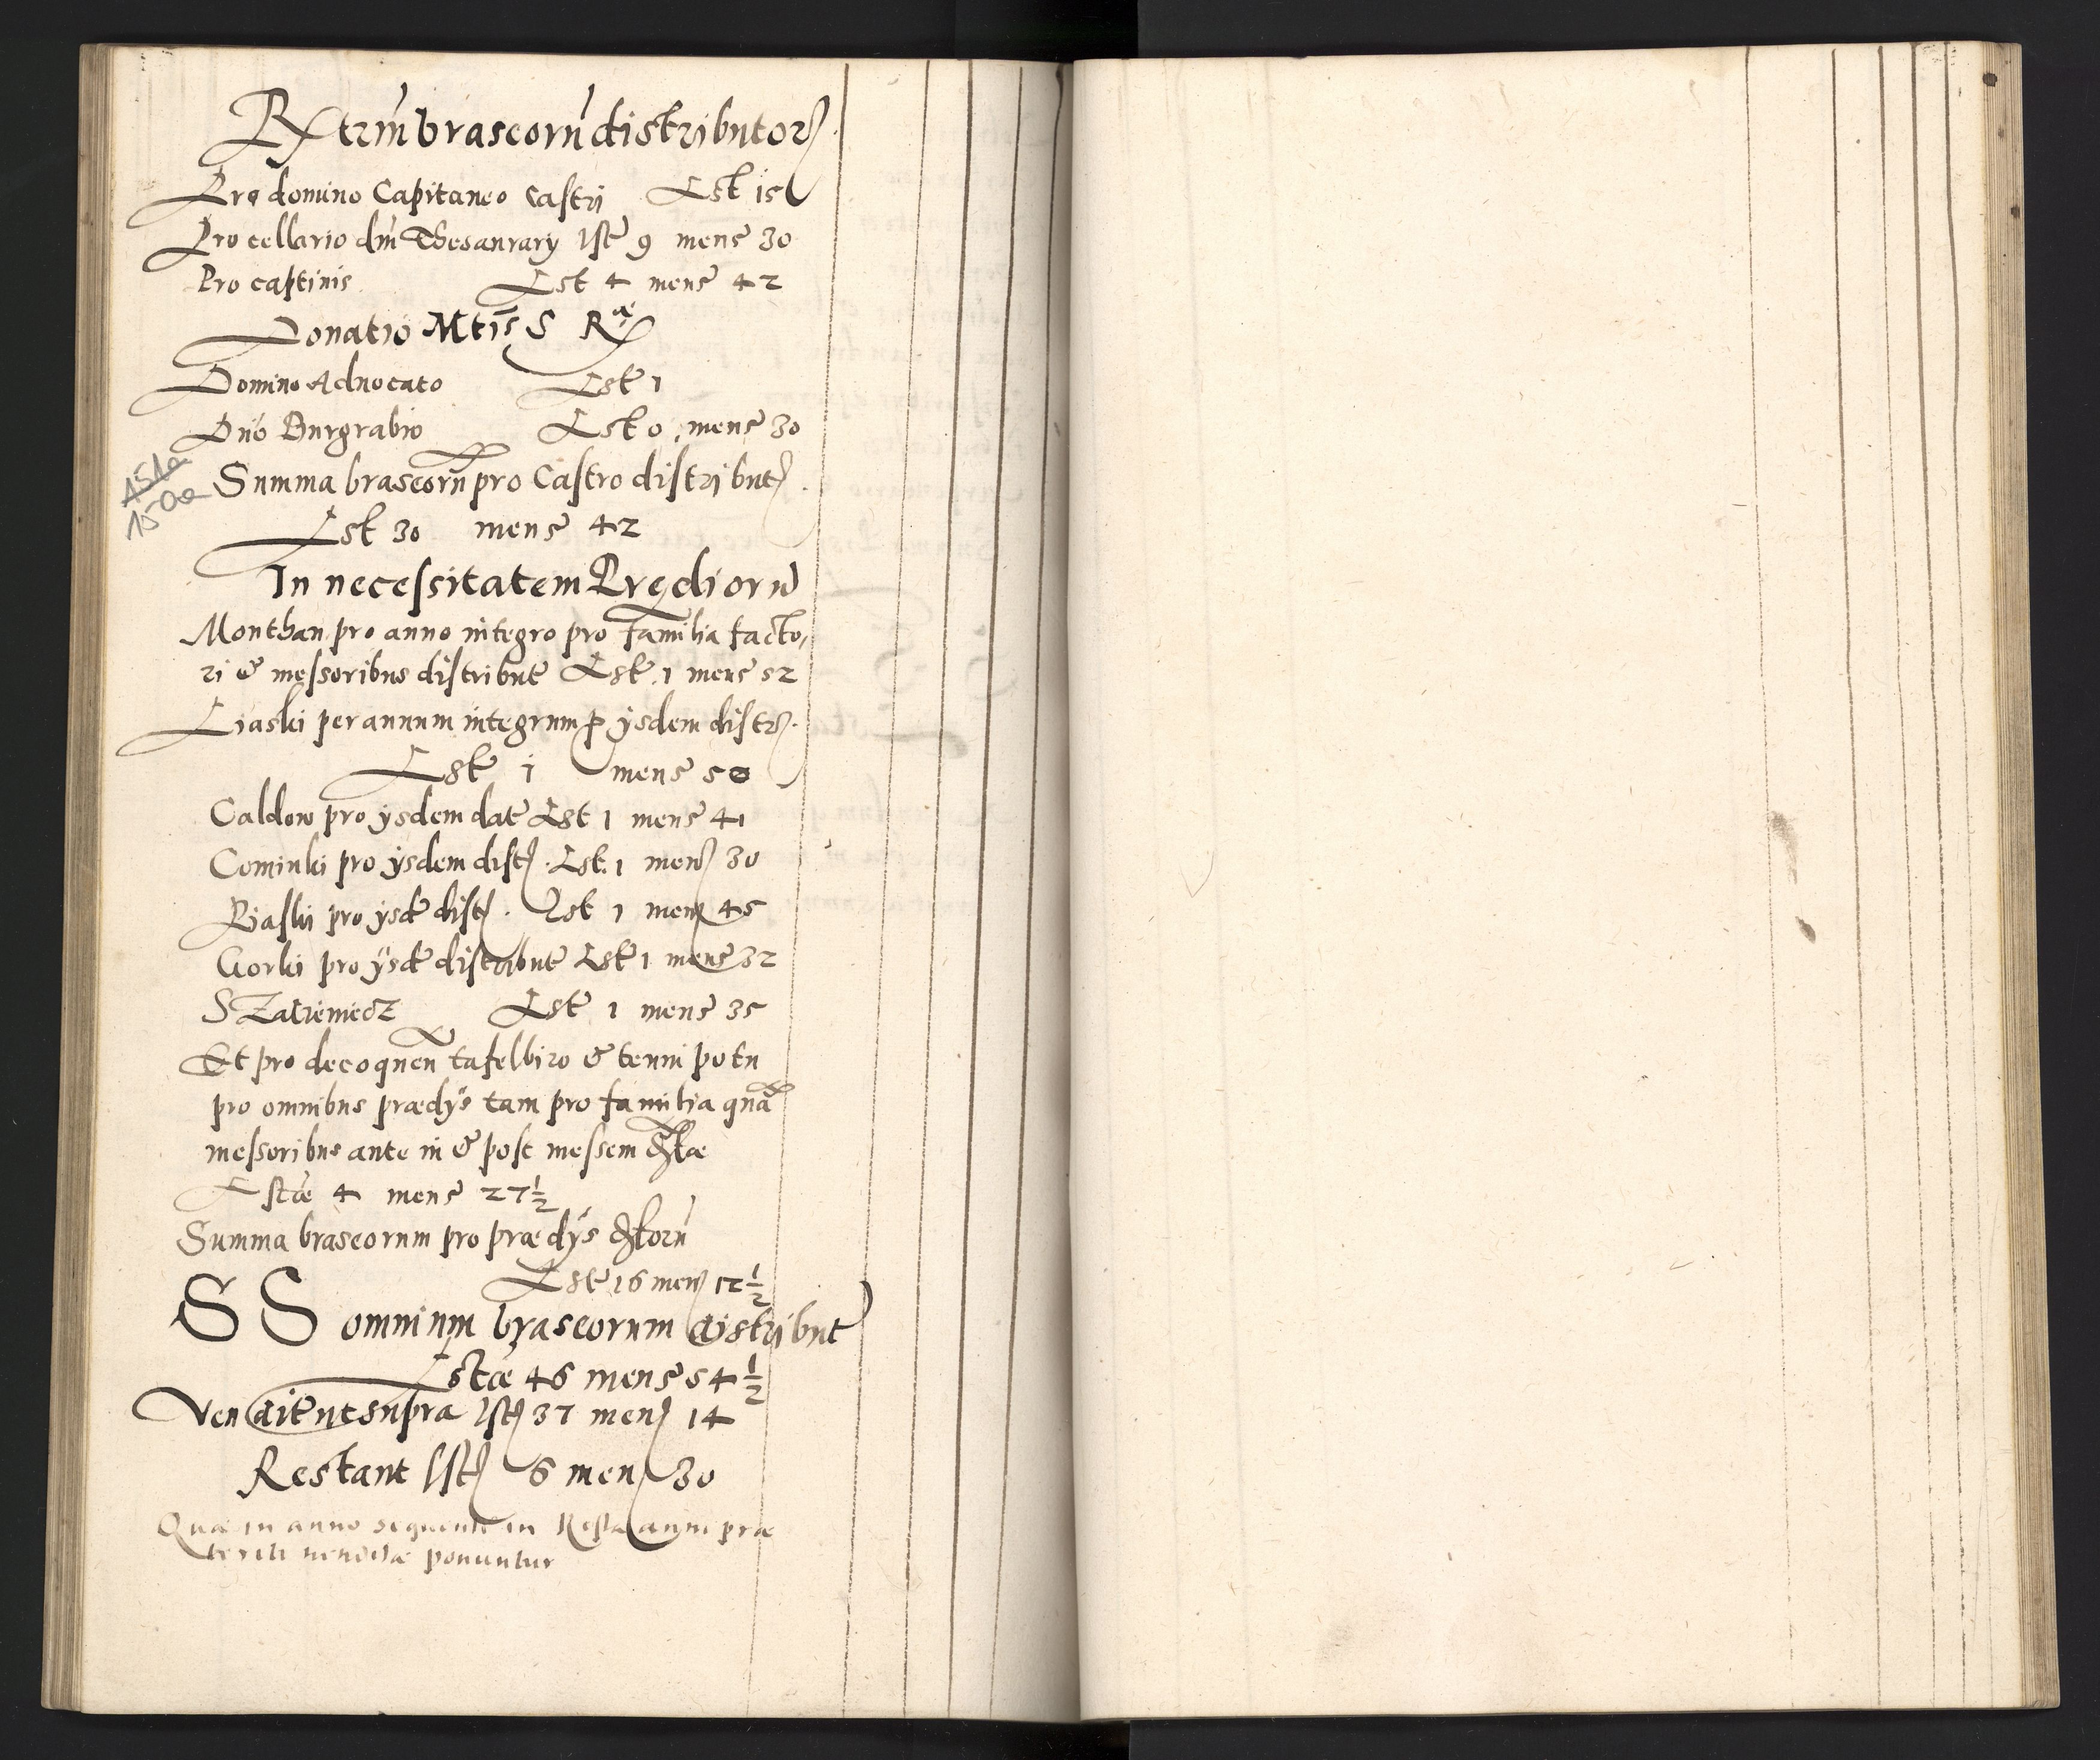 Rxtrũ braseorũ distributor
Pro domino Capitaneo Castri Lst 15
Pro cellario dñi Thesaurarÿ lste 9 mens 30
Pro captiuis Lst 4 mens 42
Donatio Mtis S R
Domino Aduocato Lste 1
Dño Burgrabio Lst 0, mens 30
151a
150a
Summa braseorũ pro Castro distribut.
Lst 30 mens 42
In necessitatem Prędiorũ
Monthau pro anno integro pro familia facto,
ri & messoribus distribut Lst 1 mens 52
Liaski per annum integrum p ÿsdem distr.
Lst 1 mens 50
Caldow pro ÿsdem dat Lst 1 mens 41
Cominki pro ÿsdem dist. Lst. 1 mens 30
Piaski pro ÿsd dist. Lst 1 mens 45
Gorki pro ÿsd distribut Lst 1 mens 32
Lst 1 mens 35
Et pro decoquen tafelbiro & tenui potu
pro omnibus prædÿs tam pro familia quã
messoribus ante in & post messem
Lstæ 4 mens 27 1/2
Summa braseorum pro prædÿs
Lst 16 mens 12 1/2
SS omnium braseorum distribut
Lstæ 46 mens 54 1/2
Vendit ut supra lst 37 mens 14
Restant lst 6 mens 30
Quæ in anno sequenti in Resta anni præ
teriti venditæ ponuntur